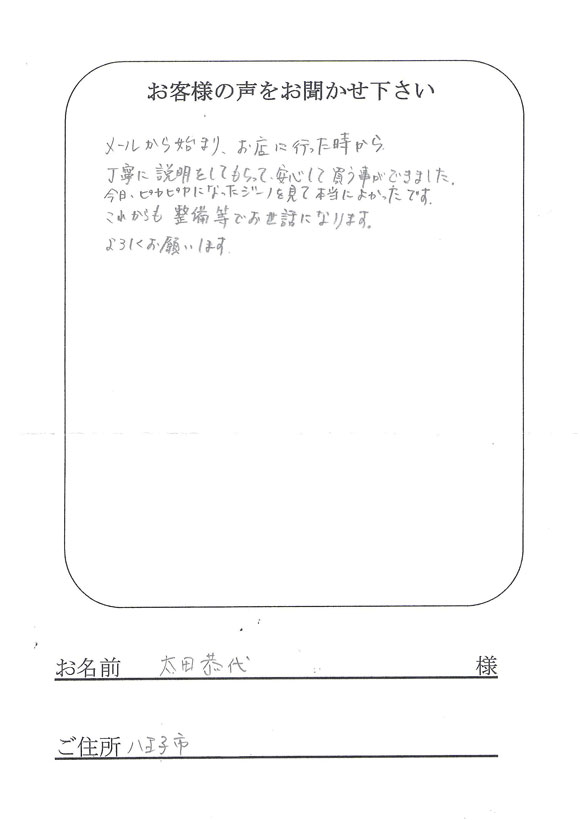 お客様の声をお聞かせ下さい
メールから始まり、お店に行った時から
丁寧に説明をしてもらって、安心して買う事ができました。
今日、ピカピカになったジーノを見て本当によかったです。
これからも整備等でお世話になります。
よろしくお願いします。
お名前 太田恭代 様
ご住所 八王子市